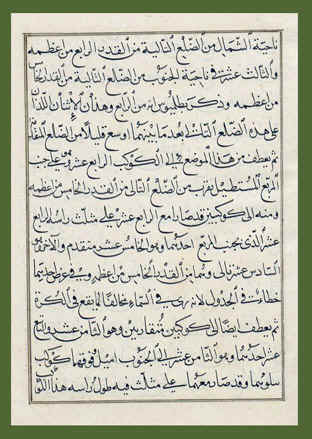 ناحية الشمال من الضلع التالية من القدر الرابع من اعظمه
والثالث عشر في ناحية الجنوب من الضلع التالية من القدر الخامس
من اعظمه وذكر بطلميوس انه من الرابع وهذان الاثنان اللذان
على هذه الضلع الثالث ابعد ما بينهما اوسع قليلا من الضلع المتقدمة
ثم يعطف من هذا الموضع الى الكوكب الرابع عشر وهو على جنب
المربع المستطيل بقرب من الضلع الثاني من القدر الخامس من اعظمه
ومنه الى كوكبين قد صارا مع الرابع عشر على مثلث راسه الرابع
عشر الذي بجنب المربع احدهما وهو الخامس عشر متقدم والاخر وهو
السادس عشر تالي وهما من القدر الخامس من اعظمه وفي عرض احدهما
خطاء في الجدول لانه يرى في السماء مخالفا لما يقع في الكرة
ثم يعطف ايضا الى كوكبين متقاربين وهو الثامن عشر والتاسع
عشر احدهما وهو الثامن عشر الى الجنوب اميل فوقهما كوكب
يتلوهما وقد صار معهما على مثلث فيه طول راسه هذا الكوكب